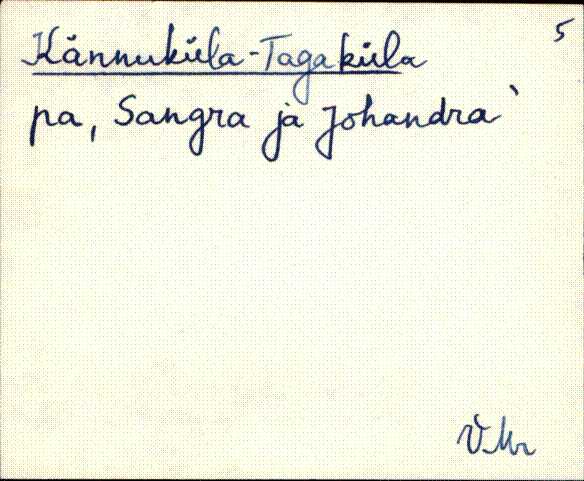 5
Kännuküla-Tagaküla
pa, Sangra ja Johandra`